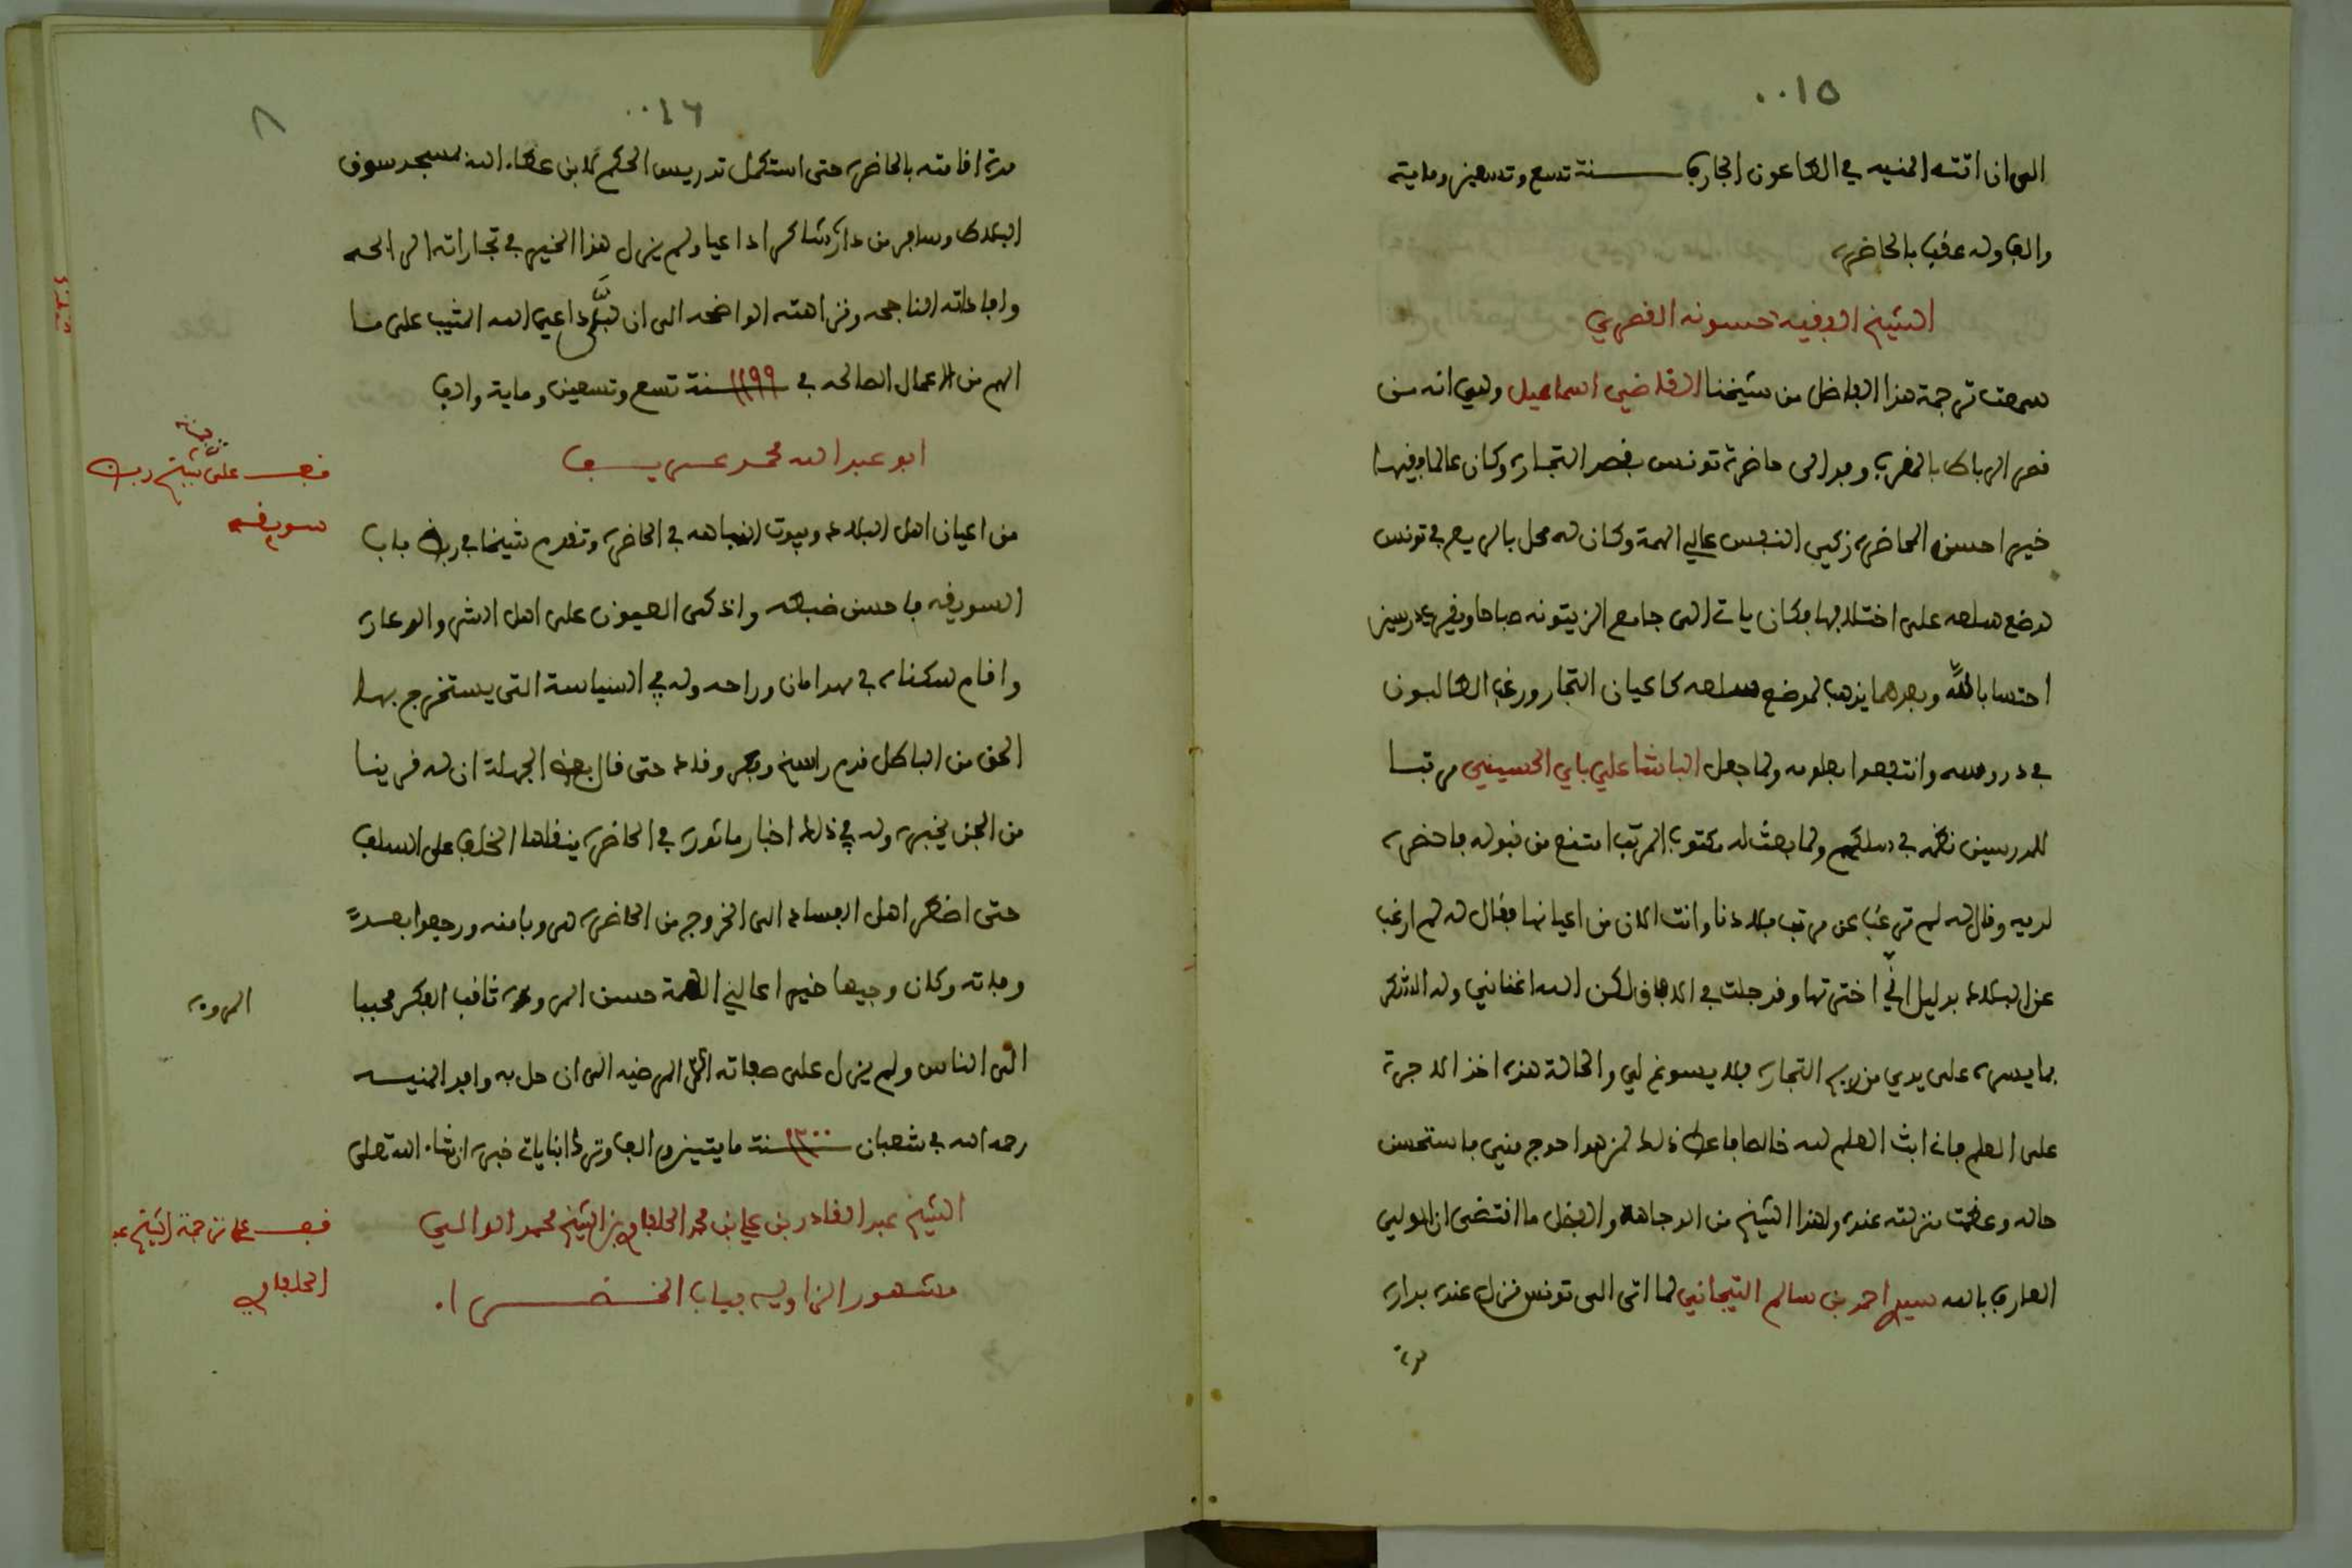 ٠٠١٥
الى ان اتته المنيه في الطاعون الجارف سنة تسع وتسعين ومايتة
والف وله عقب بالحاضره
الشيخ الفقيه حسونه القصري
سمعت ترجمة هذا الفاضل من شيخنا القاضي اسماعيل وهي انه من
قصر الرباط بالمغرب وفد الى حاضرة تونس بقصد التجاره وكان عالما فقيها
خيرا حسن المحاضره زكي النفس عالي الهمة وكان له محل بالربع في تونس
لوضع سلعه على اختلافها فكان ياتي الى جامع الزيتونه صباحا ويقرئ درسين
احتسابا لله وبعدهما يذهب لموضع سلعه كاعيان التجار ورغب الطالبون
في دروسه وانتفعوا بعلومه ولما جعل الباشا علي باي الحسيني مرتبا
للمدرسين نظمه في سلكهم ولما بعث له مكتوب المرتب امتنع من قبوله فاحضره
لديه وقال له لم ترغب عن مرتب بلادنا وانت الان من اعيانها فقال له لم ارغب
عن البلاد بدليل اني اخترتها وقد جلت في الافاق لكن الله اغناني وله الشكر
بما يسره على يدي من ربح التجاره فلا يسوغ لي والحالة هذه اخذ الاجرة
على العلم فانا ابث العلم لله خالصا فاعط ذلك لمن هو احوج مني فاستحسن
حاله وعظمت منزلته عنده ولهذا الشيخ من الوجاهة والفضل ما اقتضى ان الولي
العارف بالله سيدي احمد بن سالم التيجاني لما اتى الى تونس نزل عنده بداره
مدة
٠٠١٦
٨
مدة اقامته بالحاضره حتى استكمل تدريس الحكم لابن عطاء الله بمسجد سوق
البلاط وسافر من داره شاكرا داعيا ولم يزل هذا الخير في تجاراته الرابحه
وافاداته الناجحه ونزاهته الواضحه الى ان لبَّى داعي الله المثيب على ما
الهم من الاعمال الصالحه في ١١٩٩ سنة تسع وتسعين وماية والف
ابو عبد الله محمد عريف
من اعيان اهل البلاد وبيوت النباهه في الحاضره وتقدم شيخا في ربض باب
السويقه فاحسن ضبطه واذكى العيون على اهل الشر والدعاره
واقام سكناه في مهد امان وراحه وله في السياسة التي يستخرج بها
الحق من الباطل قدم راسخ وفكر وقاد حتى قال بعض الجهلة ان له قرينا
من الجن يخبره وله في ذلك اخبار ماثوره في الحاضره ينقلها الخلف على السلف
حتى اضطر اهل الفساد الى الخروج من الحاضره هروبا منه ورجعوا بعد
وفاته وكان وجيها خيرا عالي الهمة حسن المروءه ثاقب الفكر محببا
الى الناس ولم يزل على صفاته المرضيه الى ان حل به وافد المنيه
رحمه الله في شعبان ١٢٠٠ سنة مايتين والف وترك ابنا يات خبره ان شاء الله تعلى
الشيخ عبد القادر بن علي بن محمد الحلفاوي بن الشيخ محمد الوالي
مشهور الزاويه بباب الخضراء
قف على شيخ ربض
سويقه
المروه
قف على ترجمة الشيخ عبد
الحلفاوي